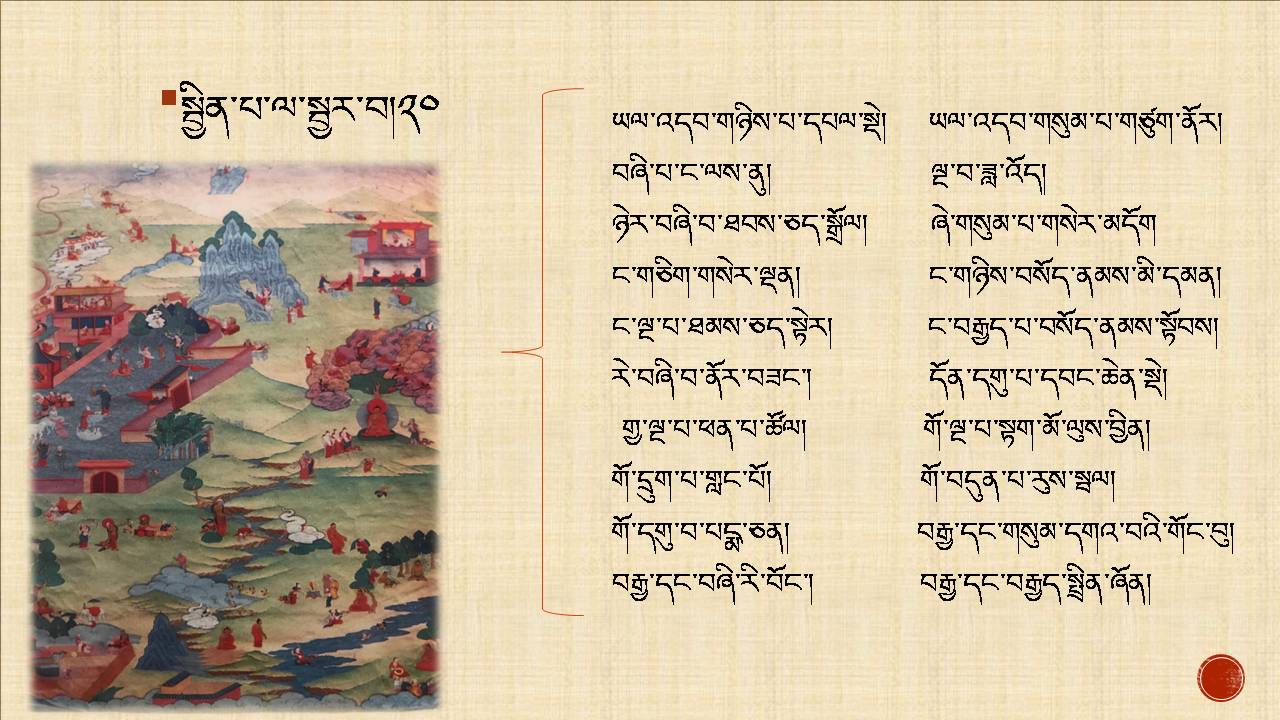 སྦྱིན་པ་ལ་སྦྱར་བ།༢༠
ཡལ་འདབ་གཉིས་པ་དཔལ་སྡེ། ཡལ་འདབ་གསུམ་པ་གཙུག་ནོར།
བཞི་པ་ང་ལས་ནུ། ལྔ་བ་ཟླ་འོད།
ཉེར་བཞི་བ་ཐབས་ཅད་སྒྲོལ། ཞེ་གསུམ་པ་གསེར་མདོག
ང་གཅིག་གསེར་ལྡན། ང་གཉིས་བསོད་ནམས་མི་དམན།
ང་ལྔ་པ་ཐམས་ཅད་སྟེར། ང་བརྒྱད་པ་བསོད་ནམས་སྟོབས།
རེ་བཞི་བ་ནོར་བཟང་། དོན་དགུ་པ་དབང་ཆེན་སྡེ།
གྱ་ལྔ་པ་ཕན་པ་ཚོལ། གོ་ལྔ་པ་སྟག་མོ་ལུས་བྱིན།
གོ་དྲུག་པ་གླང་པོ། གོ་བདུན་པ་རུས་སྦལ།
གོ་དགུ་བ་པདྨ་ཅན། བརྒྱ་དང་གསུམ་དགའ་བའི་གོང་བུ།
བརྒྱ་དང་བཞི་རི་བོང་། བརྒྱ་དང་བརྒྱད་སྤྲིན་ཞོན།